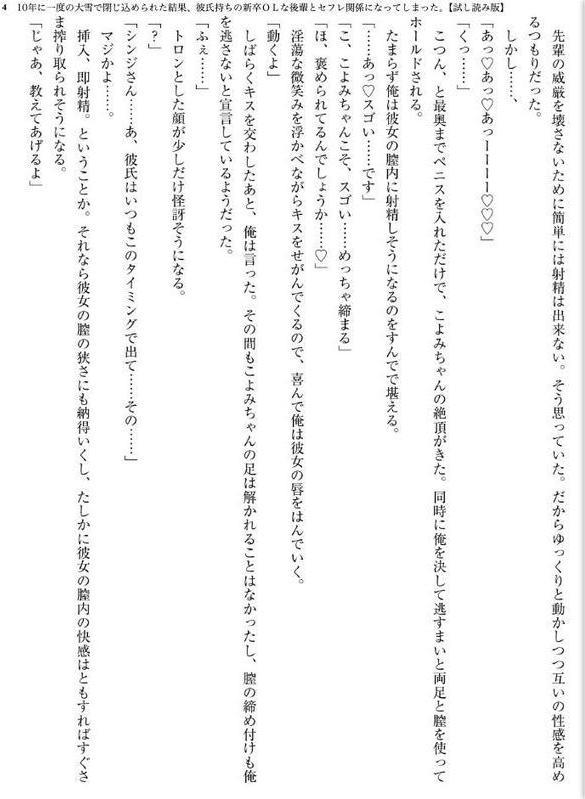 4 10年に一度の大雪で閉じ込められた結果、彼氏持ちの新卒ＯＬな後輩とセフレ関係になってしまった。【試し読み版】
先輩の威厳を壊さないために簡単には射精は出来ない。そう思っていた。だからゆっくりと動かしつつ互いの性感を高め
るつもりだった。
しかし……、
「あっ♡あっ♡あっーーーー♡♡♡」
「くっ……」
こつん、と最奥までペニスを入れただけで、こよみちゃんの絶頂がきた。同時に俺を決して逃すまいと両足と膣を使って
ホールドされる。
たまらず俺は彼女の膣内に射精しそうになるのをすんでで堪える。
「……あっ♡スゴい……です」
「こ、こよみちゃんこそ、スゴい……めっちゃ締まる」
「ほ、褒められてるんでしょうか……♡」
淫蕩な微笑みを浮かべながらキスをせがんでくるので、喜んで俺は彼女の唇をはんでいく。
「動くよ」
しばらくキスを交わしたあと、俺は言った。その間もこよみちゃんの足は解かれることはなかったし、膣の締め付けも俺
を逃さないと宣言しているようだった。
「ふぇ……」
トロンとした顔が少しだけ怪訝そうになる。
「？」
「シンジさん……あ、彼氏はいつもこのタイミングで出て……その……」
マジかよ……。
挿入、即射精。ということか。それなら彼女の膣の狭さにも納得いくし、たしかに彼女の膣内の快感はともすればすぐさ
ま搾り取られそうになる。
「じゃあ、教えてあげるよ」